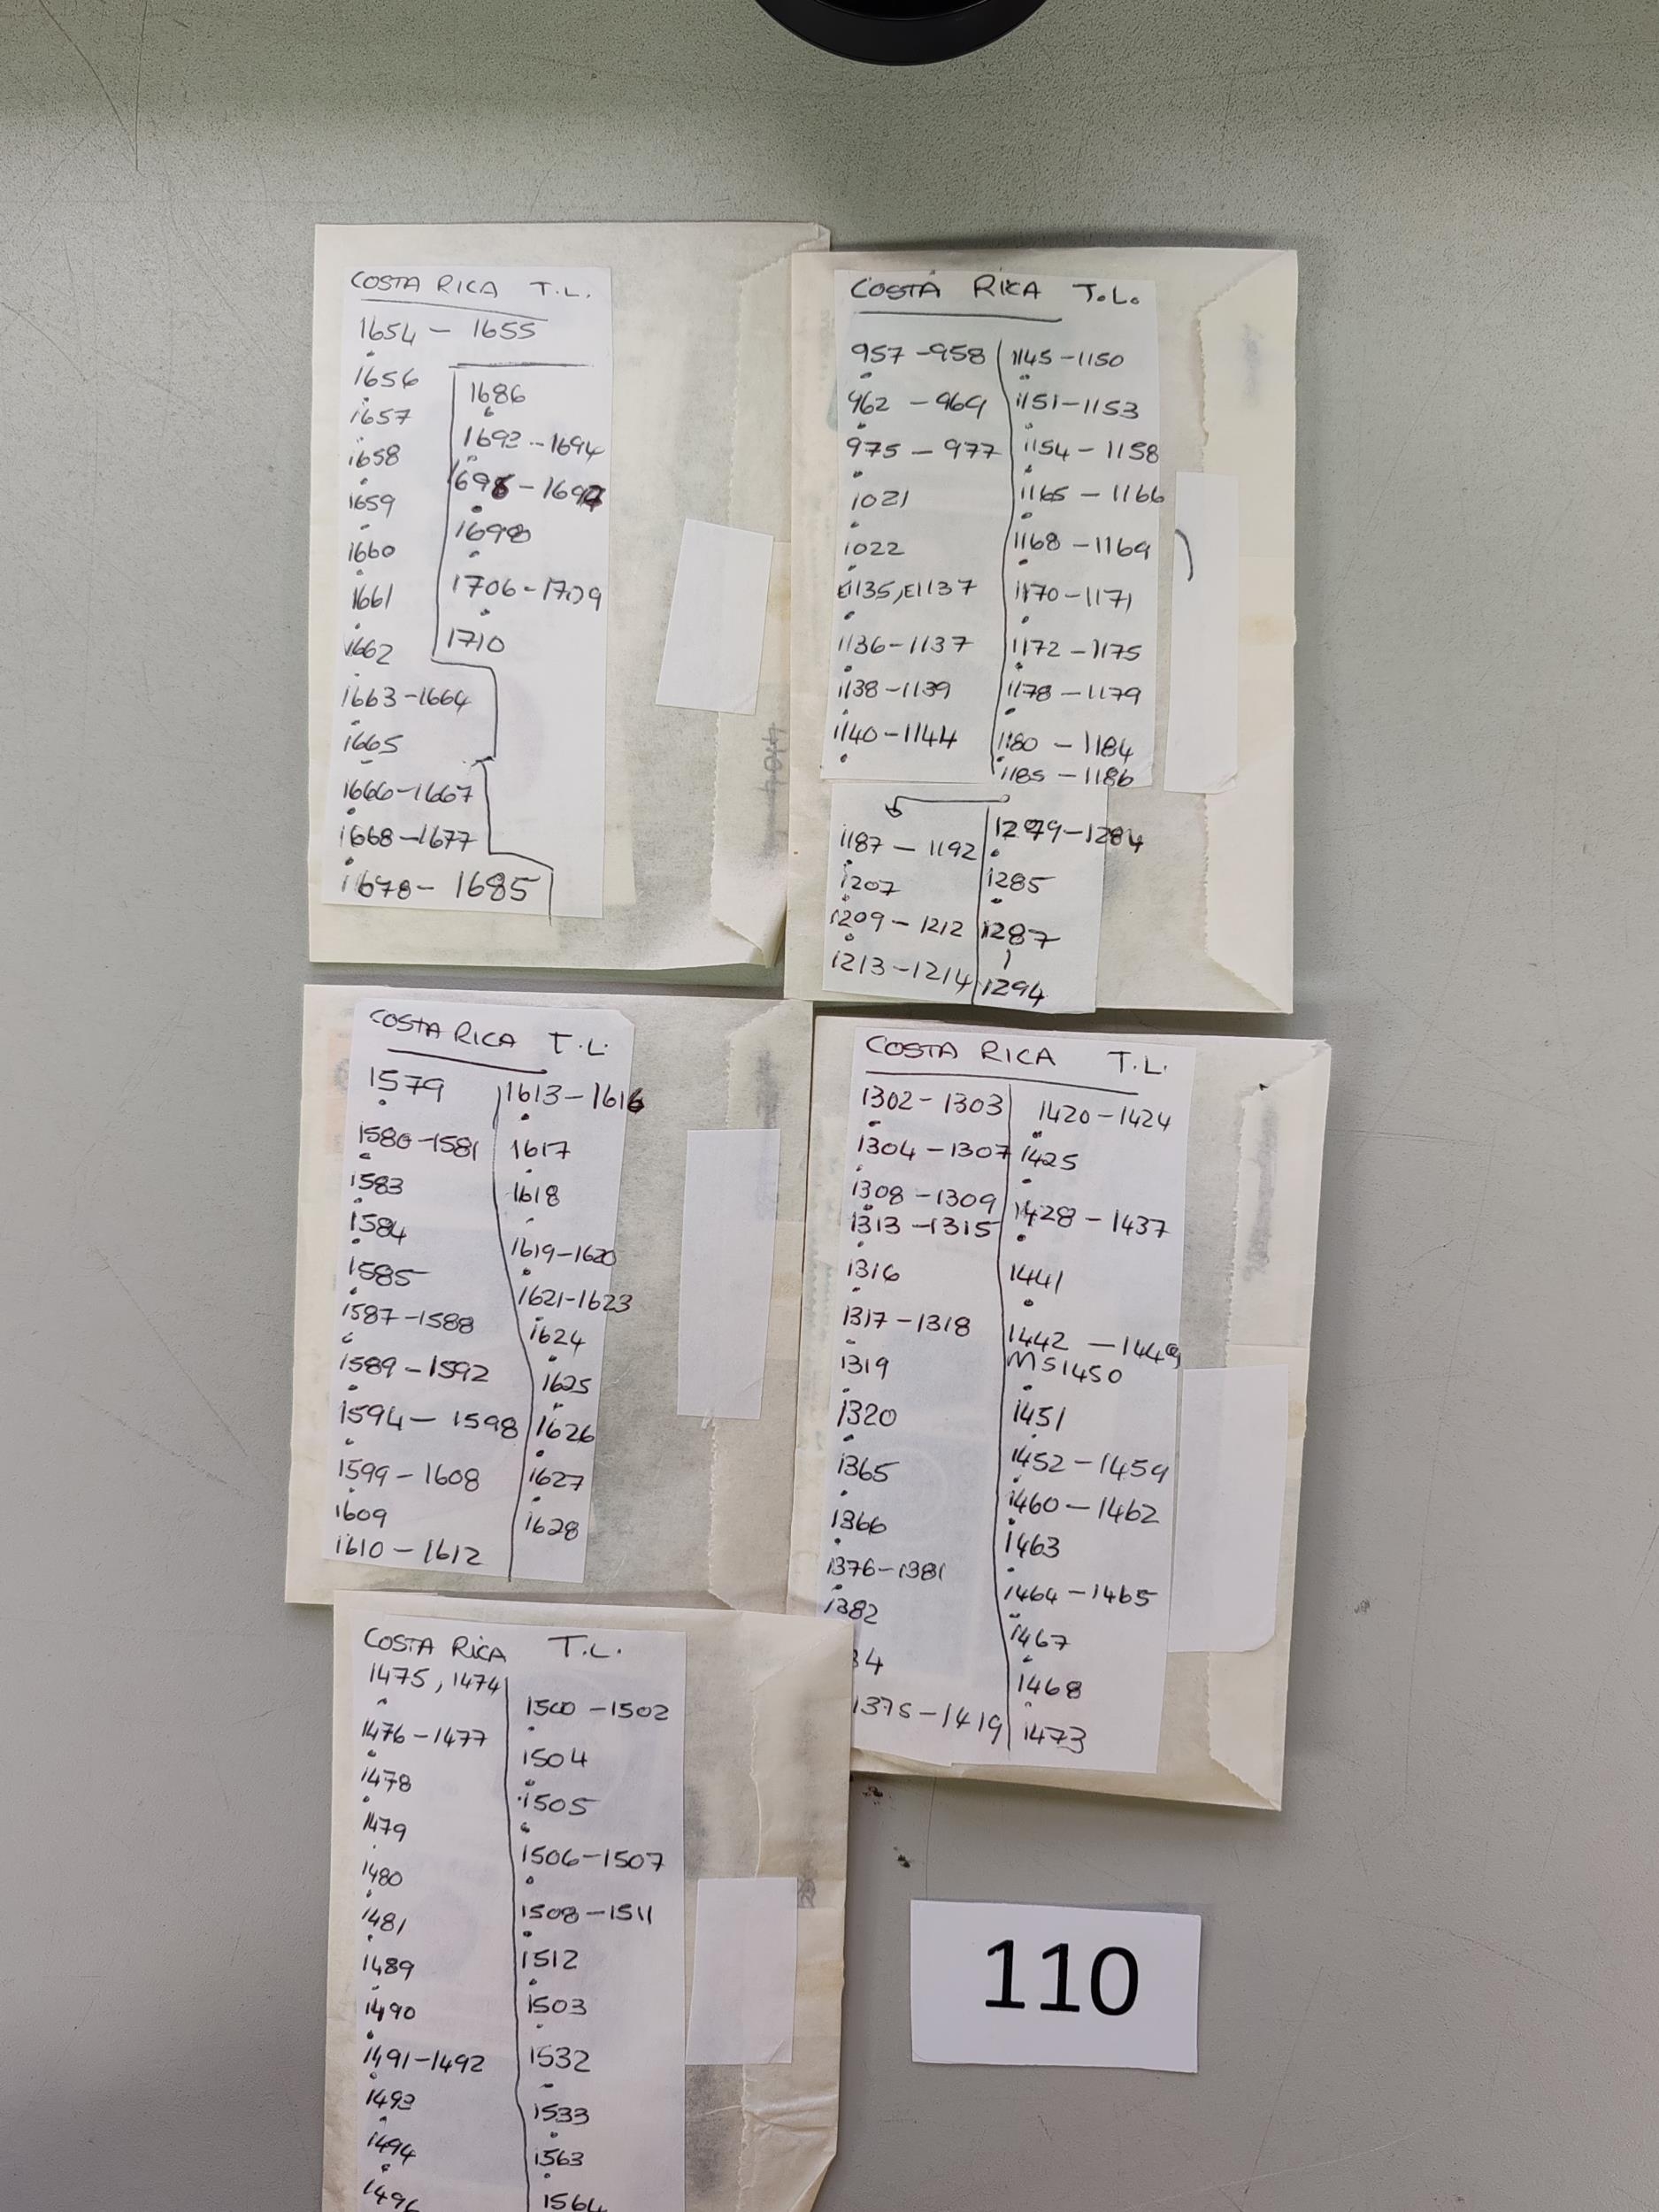 COSTA RICA T.L.
1654 - 1655
1656
1657
1658
1659
1660
1661
1662
1663-1664
1665
1666-1667
1668-1677
1678- 1685
1686
1693-1694
1698
1706-1709
1710
COSTA RICA T.L.
957-958
962 - 969
975 - 977
1021
1022
E1135, E1137
1136-1137
1138-1139
1140-1144
1145-1150
1151-1153
1154-1158
1165 - 1166
1168 - 1169
1170-1171
1172-1175
1178-1179
1180 - 1184
1185 - 1186
1187 - 1192
1207
1209 - 1212
1213-1214
1279-1284
1285
1287
1294
COSTA RICA T.L.
1579
1580-1581
1583
1584
1585
1587-1588
1589-1592
1594- 1598
1599-1608
1609
1610-1612
1613-1616
1617
1618
1619-1620
1621-1623
1624
1625
1626
1627
1628
COSTA RICA T.L.
1302-1303
1304-1307
1308-1309
1313-1315
1316
1317-1318
1319
1320
1365
1366
1376-1381
1382
84
1375-1419
1420-1424
1425
1428-1437
1441
1442 -1449
MS1450
1451
1452-1459
1460-1462
1463
1464-1465
1467
1468
1473
COSTA RICA T.L.
1475, 1474
1476-1477
1478
1479
1480
1481
1489
1490
1491-1492
1493
1494
1500-1502
1504
1505
1506-1507
1508-1511
1512
1503
1532
1533
1563
1564
110